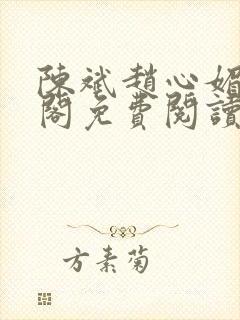 陳斌趙心媚
閣免費閱讀
方素菊